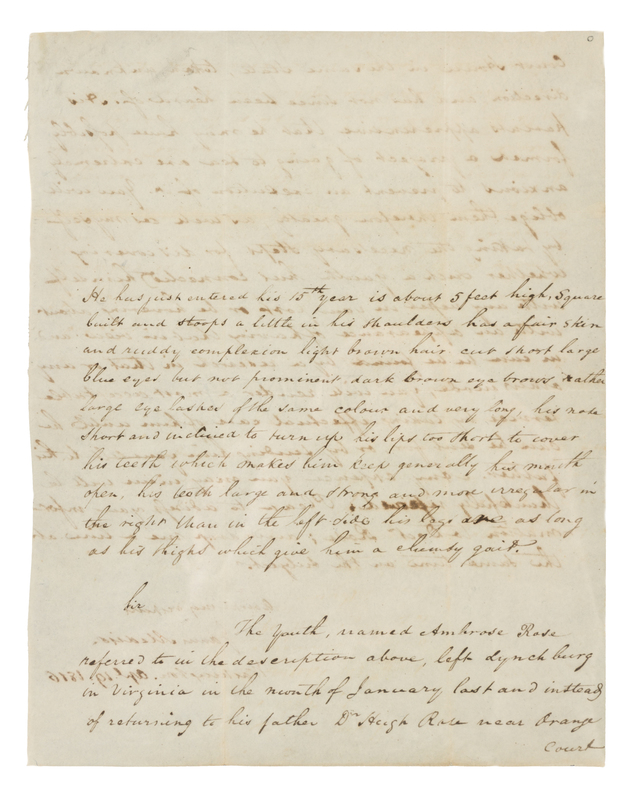 He has just entered his 15th year is about 5 feet high, Square
built and stoops a little in his shoulders has a fair skin
and ruddy complexion light brown hair cut short large
blue eyes but not prominent, dark brown eye brows rather
large eye lashes of the same colour and very long, his nose
short and inclined to turn up his lips too short to cover
his teeth which makes him keep generally his mouth
open, his teeth large and strong and more irregular in
the right than in the left side his legs are as long
as his thighs which give him a clumsy gait.
Sir
The youth, named Ambrose Rose
referred to in the description above, left Lynchburg
in Virginia in the month of January last and instead
of returning to his father Dr Hugh Rose near Orange
Court